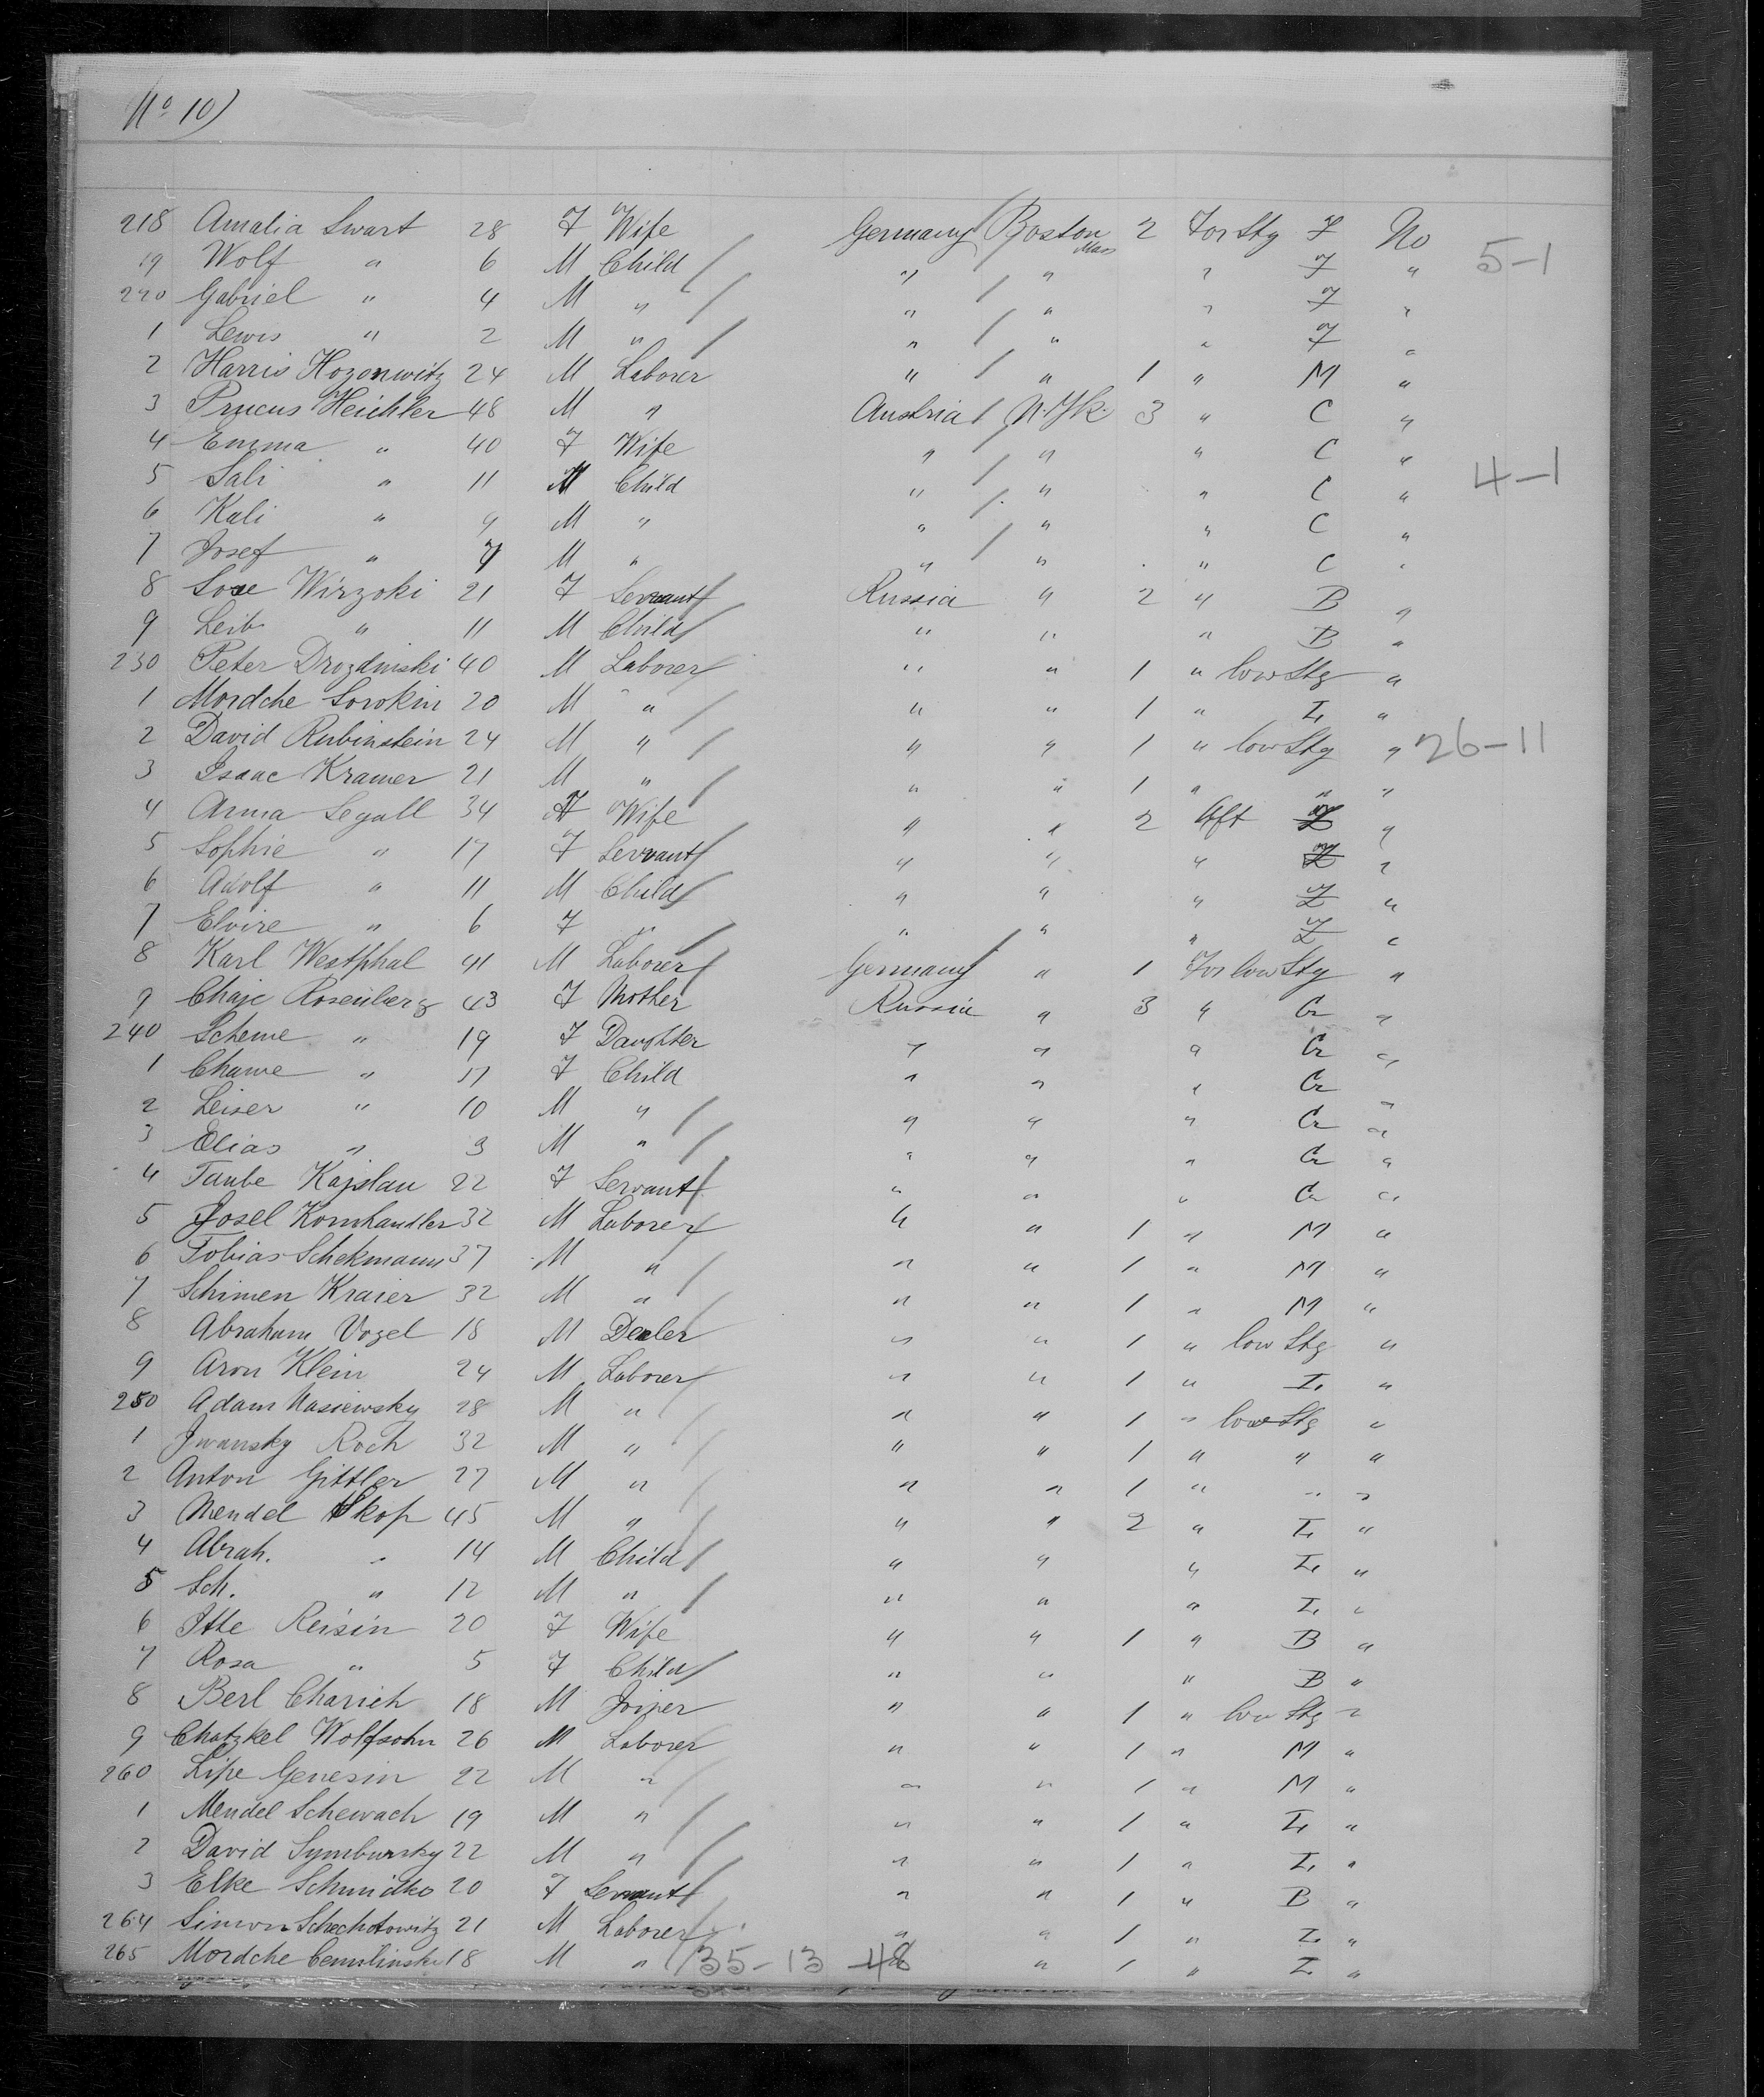 No 10)
218 Amalia Swart 28 F Wife Germany Boston Mass 2 For Stg F No
19 Wolf " 6 M Child " " " F " 5-1
220 Gabriel " 4 M " " " " F "
1 Lewis " 2 M " " " " F "
2 Harris Hozenwitz 24 M Laborer " " 1 " M "
3 Heichler 48 M " Austria N.Yk. 3 " C "
4 Emma " 40 F Wife " " " C "
5 Sali " 11 M Child " " " C " 4-1
6 Kali " 9 M " " " " C "
7 Josef " 7 M " " " " C "
8 Wirzoki 21 F Servant Russia " 2 " B "
9 Leib " 11 M Child " " " B "
230 Peter Drozdinski 40 M Laborer " " 1 " low Stg "
1 Mordche Sorokin 20 M " " " 1 " L "
2 David Rubinstein 24 M " " " 1 " low Stg " 26-11
3 Isaac Kramer 21 M " " " 1 " " "
4 Anna Segall 34 F Wife " " 2 Aft "
5 Sophie " 17 F Servant " " " "
6 Adolf " 11 M Child " " " "
7 Elvire " 6 F " " " " "
8 Karl Westphal 41 M Laborer Germany " 1 For low Stg "
9 Chaje Rosenberg 43 F Mother Russia " 3 " Cr "
240 Scheme " 19 F Daughter " " " Cr "
1 Chawe " F Child " " " Cr "
2 Leiser " 10 M " " " " Cr "
3 Elias " 9 M " " " " Cr "
4 Taube Kajslau 22 F Servant " " " Cr "
5 Josel Kornhandler 32 M Laborer " " 1 " M "
6 Tobias Schekmann 37 M " " " 1 " M "
7 Schimen Kraier 32 M " " " 1 " M "
8 Abraham Vogel 18 M Dealer " " 1 " low Stg "
9 Aron Klein 24 M Laborer " " 1 " L "
250 Adam Wasiewsky 28 M " " " 1 " low Stg "
1 Jwansky Roch 32 M " " " 1 " " "
2 Anton Gittler 27 M " " " 1 " " "
3 Mendel Skop 45 M " " " 2 " L "
4 Abrah. " 14 M Child " " " L "
5 Sch. " 12 M " " " " L "
6 Itte Reisin 20 F Wife " " 1 " B "
7 Rosa " 5 F Child " " " B "
8 Berl Charich 18 M Joiner " " 1 " low Stg "
9 Chatzkel Wolfsohn 26 M Laborer " " 1 " M "
260 Lipe Genesin 22 M " " " 1 " M "
1 Mendel Schewach 19 M " " " 1 " L "
2 David Symbursky 22 M " " " 1 " L "
3 Elke Schmidko 20 F Servant " " 1 " B "
264 Simon Schechotowitz 21 M Laborer " " 1 " L "
265 Mordche Cemilinski 18 M " 35-13-48 " 1 " L "